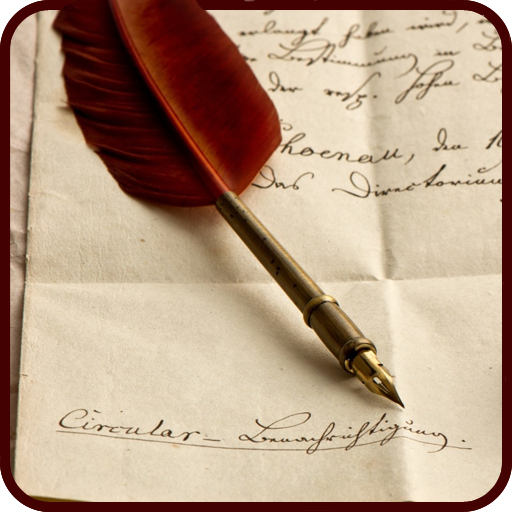 erlangt haben wird, e
Bestimmung in B
der resp. hohen B
Schoenau, den 1
Das Directorium
Circular- Benachrichtigung.